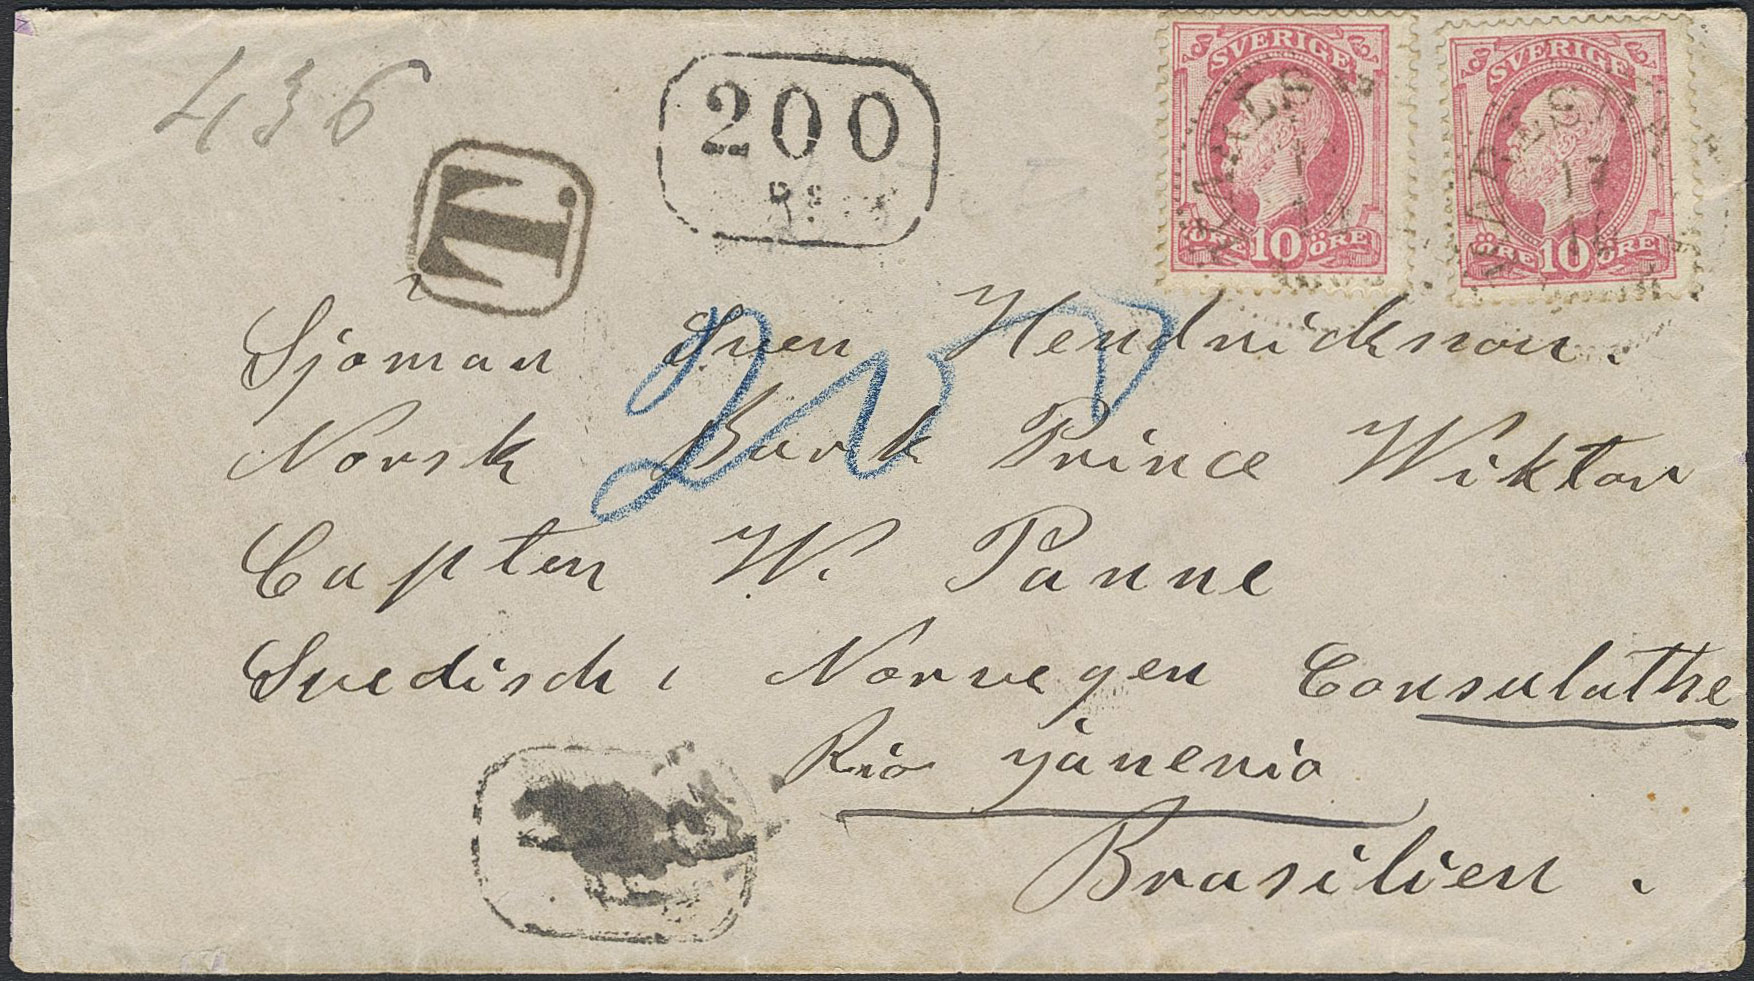 436
200
RÉIS
T.
SVERIGE
ÖRE 10 ÖRE
SVERIGE
ÖRE 10 ÖRE
17
Sjöman Sven Hendrickson.
Norsk Bark Prince Wiktor
Capten W. Panne
Svedisch, Norvegen Consulathe
Rio yaneria
Brasilien.
200